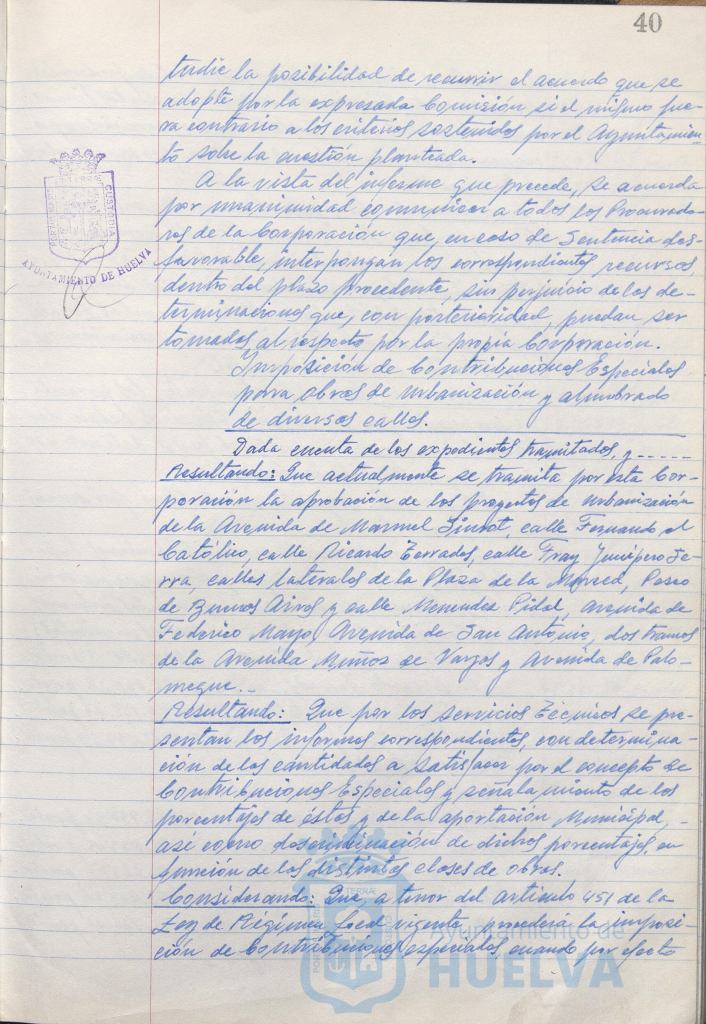 40
tudie la posibilidad de recurrir el acuerdo que se
adopte por la expresada Comisión si el mismo fue-
ra contrario a los criterios sostenidos por el Ayuntamien-
to sobre la cuestión planteada.
A la vista del informe que precede, se acuerda
por unanimidad comunicar a todos los Procurado-
res de la Corporación que, en caso de Sentencia des-
favorable, interpongan los correspondientes recursos,
dentro del plazo procedente, sin perjuicio de las de-
terminaciones que, con posterioridad, puedan ser
tomadas al respecto por la propia Corporación.
Imposición de Contribuciones Especiales
para obras de urbanización y alumbrado
de diversas calles.
Dada cuenta de los expedientes tramitados, y-----
Resultando: Que actualmente se tramita por esta Cor-
poración la aprobación de los proyectos de urbanización
de la Avenida de Manuel Siurot, calle Fernando el
Católico, calle Ricardo Terrades, calle Fray Junípero Se-
rra, calles laterales de la Plaza de la Merced, Paseo
de Buenos Aires y calle Menendez Pidal, avenida de
Federico Mayo, Avenida de San Antonio, dos tramos
de la Avenida Muñoz de Vargas y Avenida de Palo-
meque.-
Resultando: Que por los servicios Técnicos se pre-
sentan los informes correspondientes, con determina-
ción de las cantidades a satisfacer por el concepto de
Contribuciones Especiales y señalamiento de los
porcentajes de éstas y de la aportación Municipal,-
así como discriminación de dichos porcentajes, en
función de las distintas clases de obras.
Considerando: Que, a tenor del artículo 451 de la
Ley de Régimen Local vigente, procederá la imposi-
ción de Contribuciones especiales, cuando por efecto
PORTUS MARIS
CUSTODIA
AYUNTAMIENTO DE HUELVA
TERRAE
Ayuntamiento de
HUELVA